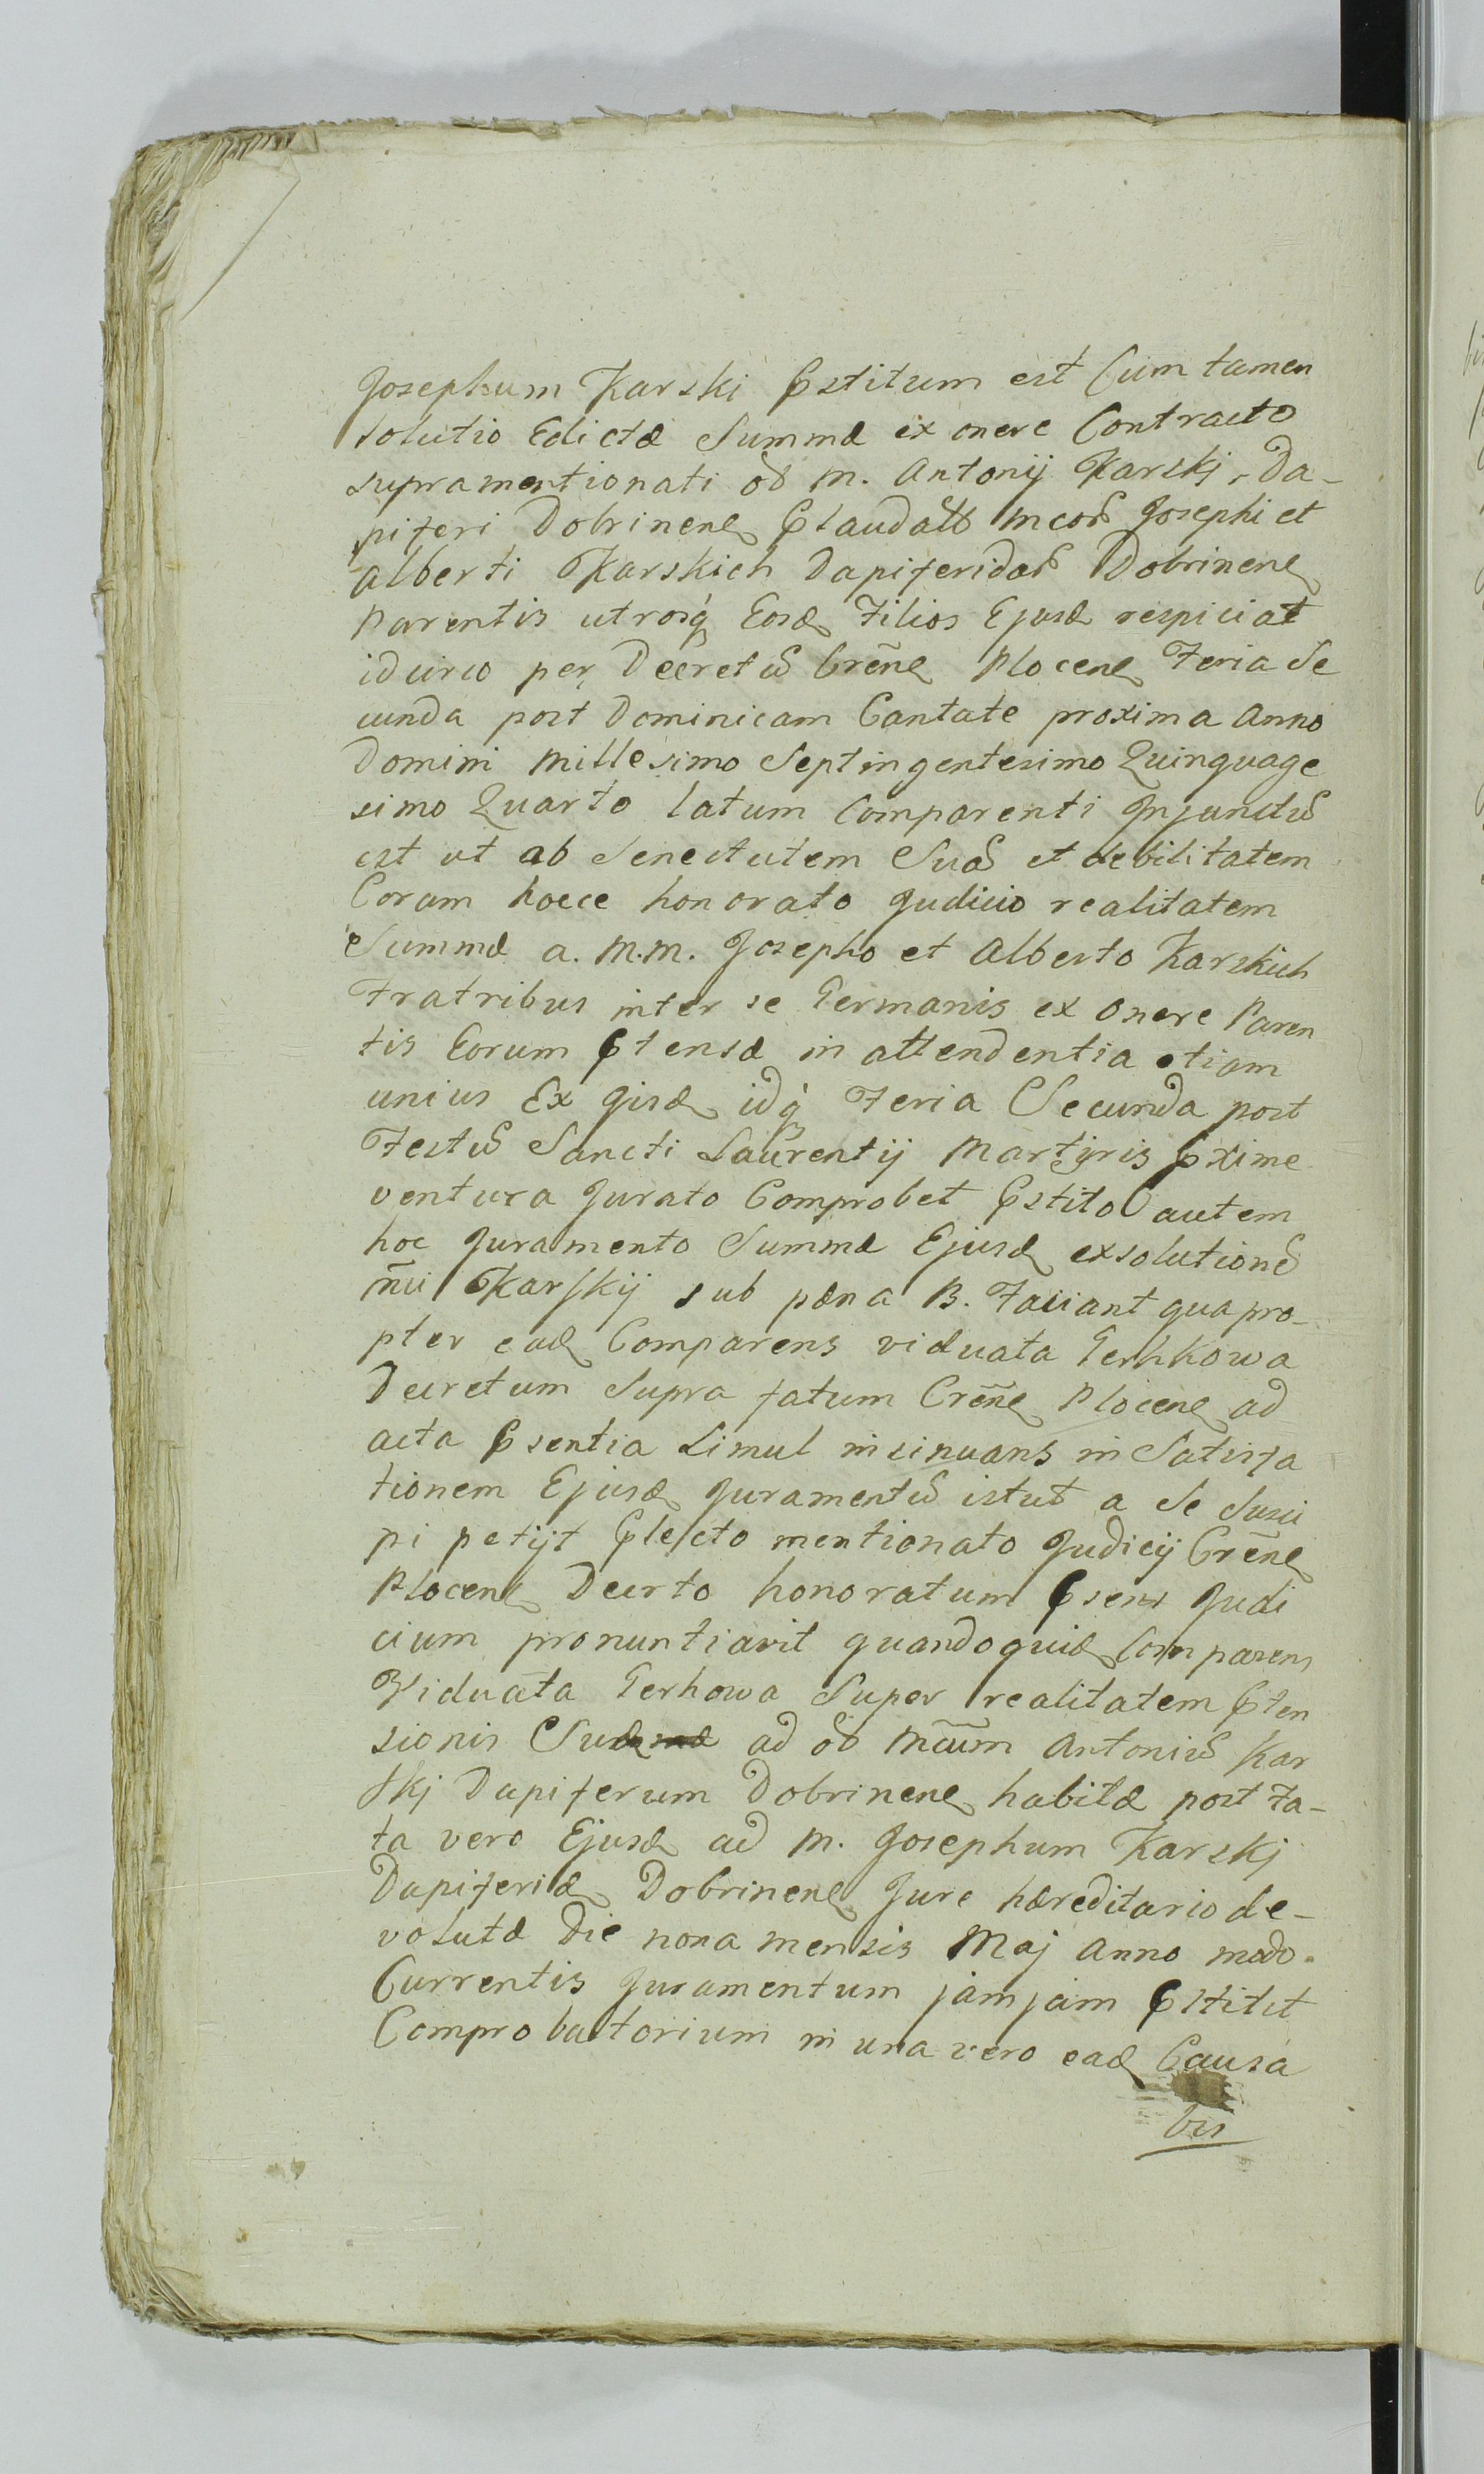 Josephum Karski Pstitum est Cum tamen
solutio Edictæ Summæ ex onere Contracto
supramentionati od M. Antonij Karskj, Da-
piferi Dobrinene Plaudatt Mcor Josephi et
Alberti Karskich Dapiferidar Dobrinene
Parentis utrosq Eosd Filios Ejusd respiciat
idcirco per Decretu Crēne Plocene Feria Se
cunda post Dominicam Cantate proxima Anno
Domini Millesimo Septingentesimo Quinquage
simo Quarto latum Comparenti Injunctu
est ut ab Senectutem Sua et debilitatem
Coram hocce honorato Judicio realitatem
Summæ a. M.M. Josepho et Alberto Karskich
Fratribus inter se Germanis ex Onere Paren
tis Eorum Ptensæ in attendentia etiam
unius Ex gisd idq Feria Secunda post
Festu Sancti Laurentij Martyris Pxime
ventura Jurato Comprobet Pstito autem
hoc Juramento Summæ Ejusd exsolutione
m̄ci Karskij sub pæna B. Faciant quapro-
pter ead Comparens viduata Gerhkowa
Decretum Supra fatum Crēne Plocene ad
acta Psentia Simul insinuans in Satisfa
tionem Ejusd Juramentu istud a Se Susci
pi petijt Plecto mentionato Judicij Crēne
Plocene Decrto honoratum Psens Judi
cium pronuntiavit quandoquid Comparens
Viduata Gerhowa Super realitatem Pten
sionis Suæ ad od Mc̄um Antoniu Kar
skj Dapiferum Dobrinene habitæ post Fa-
ta vero Ejusd ad M. Josephum Karskj
Dapiferid Dobrinene Jure hæreditario de-
volutæ Die nona mensis Maj Anno modo
Currentis Juramentum jamjam Pstitit
Comprobatorium in una vero ead Causa
bis